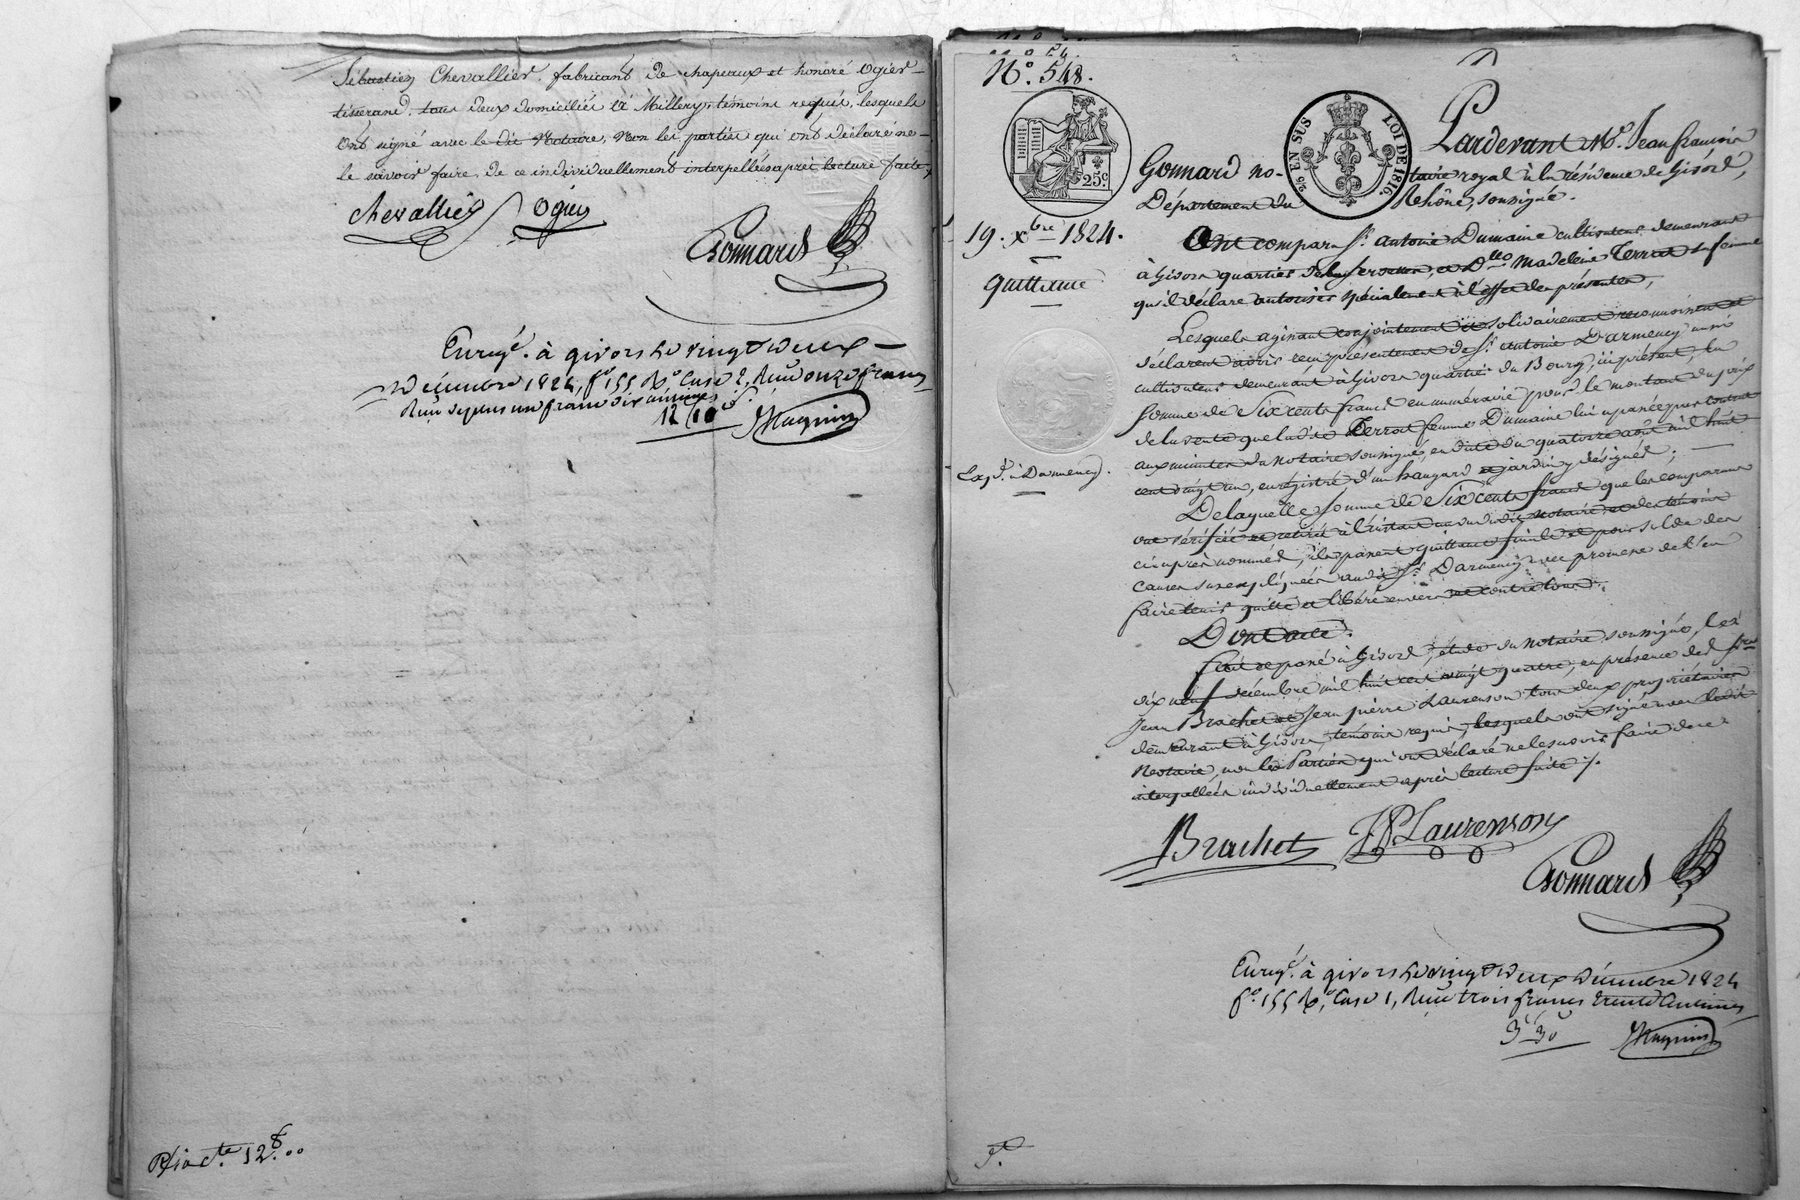 Sébastien Chevallier, fabricant de chapeaux et honoré Ogier
tisserand, tous deux domiciliés à Millery, témoins requis, lesquels
ont signé avec le dit Notaire, Non les parties qui ont déclaré ne
le savoir faire, de ce individuellement interpellés après lecture faite,
Chevallier Ogier
Gonnard
Enregé. à givors le vingt deux
Décembre 1824, fo. 155 Ro. Case 2, Reçu onze francs
Reçu de plus un franc dix centimes
12 f 10 c
Magnin
12 f. 00
No. 548.
25c.
25 EN SUS LOI DE 1816.
19. Xbre 1824.
quittance
Expé. à Darmency.
Pardevant Me. Jean françois
Gonnard notaire royal à la résidence de Givors,
Département du Rhône, soussigné.
Ont comparu Sr. antoine Dumaine cultivateur demeurant
à Givors quartier de et Dlle Madeleine Terrat sa femme
qu'il déclare autoriser spécialement à l'effet des présentes,
Lesquels agissant conjointement et solidairement reconnoissent et
déclarent avoir reçu présentement de Sr. antoine Darmency aussi
cultivateur demeurant à Givors quartier du Bourg, ici présent, la
somme de Six cents francs en numéraire, pour le montant du prix
de la vente que ladite Terrat femme Dumaine lui a passée par contrat
aux minutes du Notaire soussigné, en date du quatorze août mil huit
cent vingt un, enregistré, d'un hangard et jardin y désignés;
De laquelle somme de Six cents francs que les comparans
ont vérifiée et retirée à l'instant au vu dudit notaire et des témoins
ciaprès nommés, ils passent quittance finale et pour solde des
causes sus expliquées audit Sr. Darmency avec promesse de l'en
faire tenir quitte et libéré envers et contre tous.
Dont acte.
fait et passé à Givors, étude du notaire soussigné, le
dix neuf décembre mil huit cent vingt quatre, en présence des Srs
Jean Brachet et Jean pierre Laurenson tous deux propriétaires
demeurant à Givors, témoins requis, lesquels ont signé avec ledit
Notaire, non les Parties qui ont déclaré ne le savoir faire de ce
interpellées individuellement après lecture faite ./.
Brachet JP Laurenson
Gonnard
Enregé. à givors le vingt deux Décembre 1824
fo. 155 Ro. Case 1, Reçu trois francs trente Centimes
3 f 30 c
Magnin